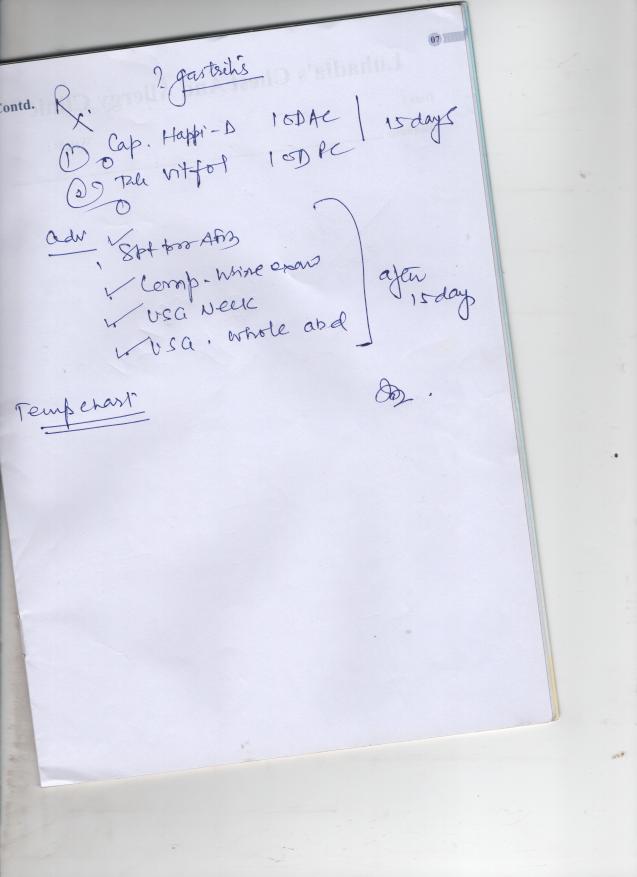 07
Contd.
? gastritis
Rx.
(1) Cap. Happi-D 1 OD AC
15 days
(2) Tab Vitfol 1 OD PC
adv
Spt for AFB
Comp. urine exam
USG Neck
USG. whole abd
after
15 days
Temp chart